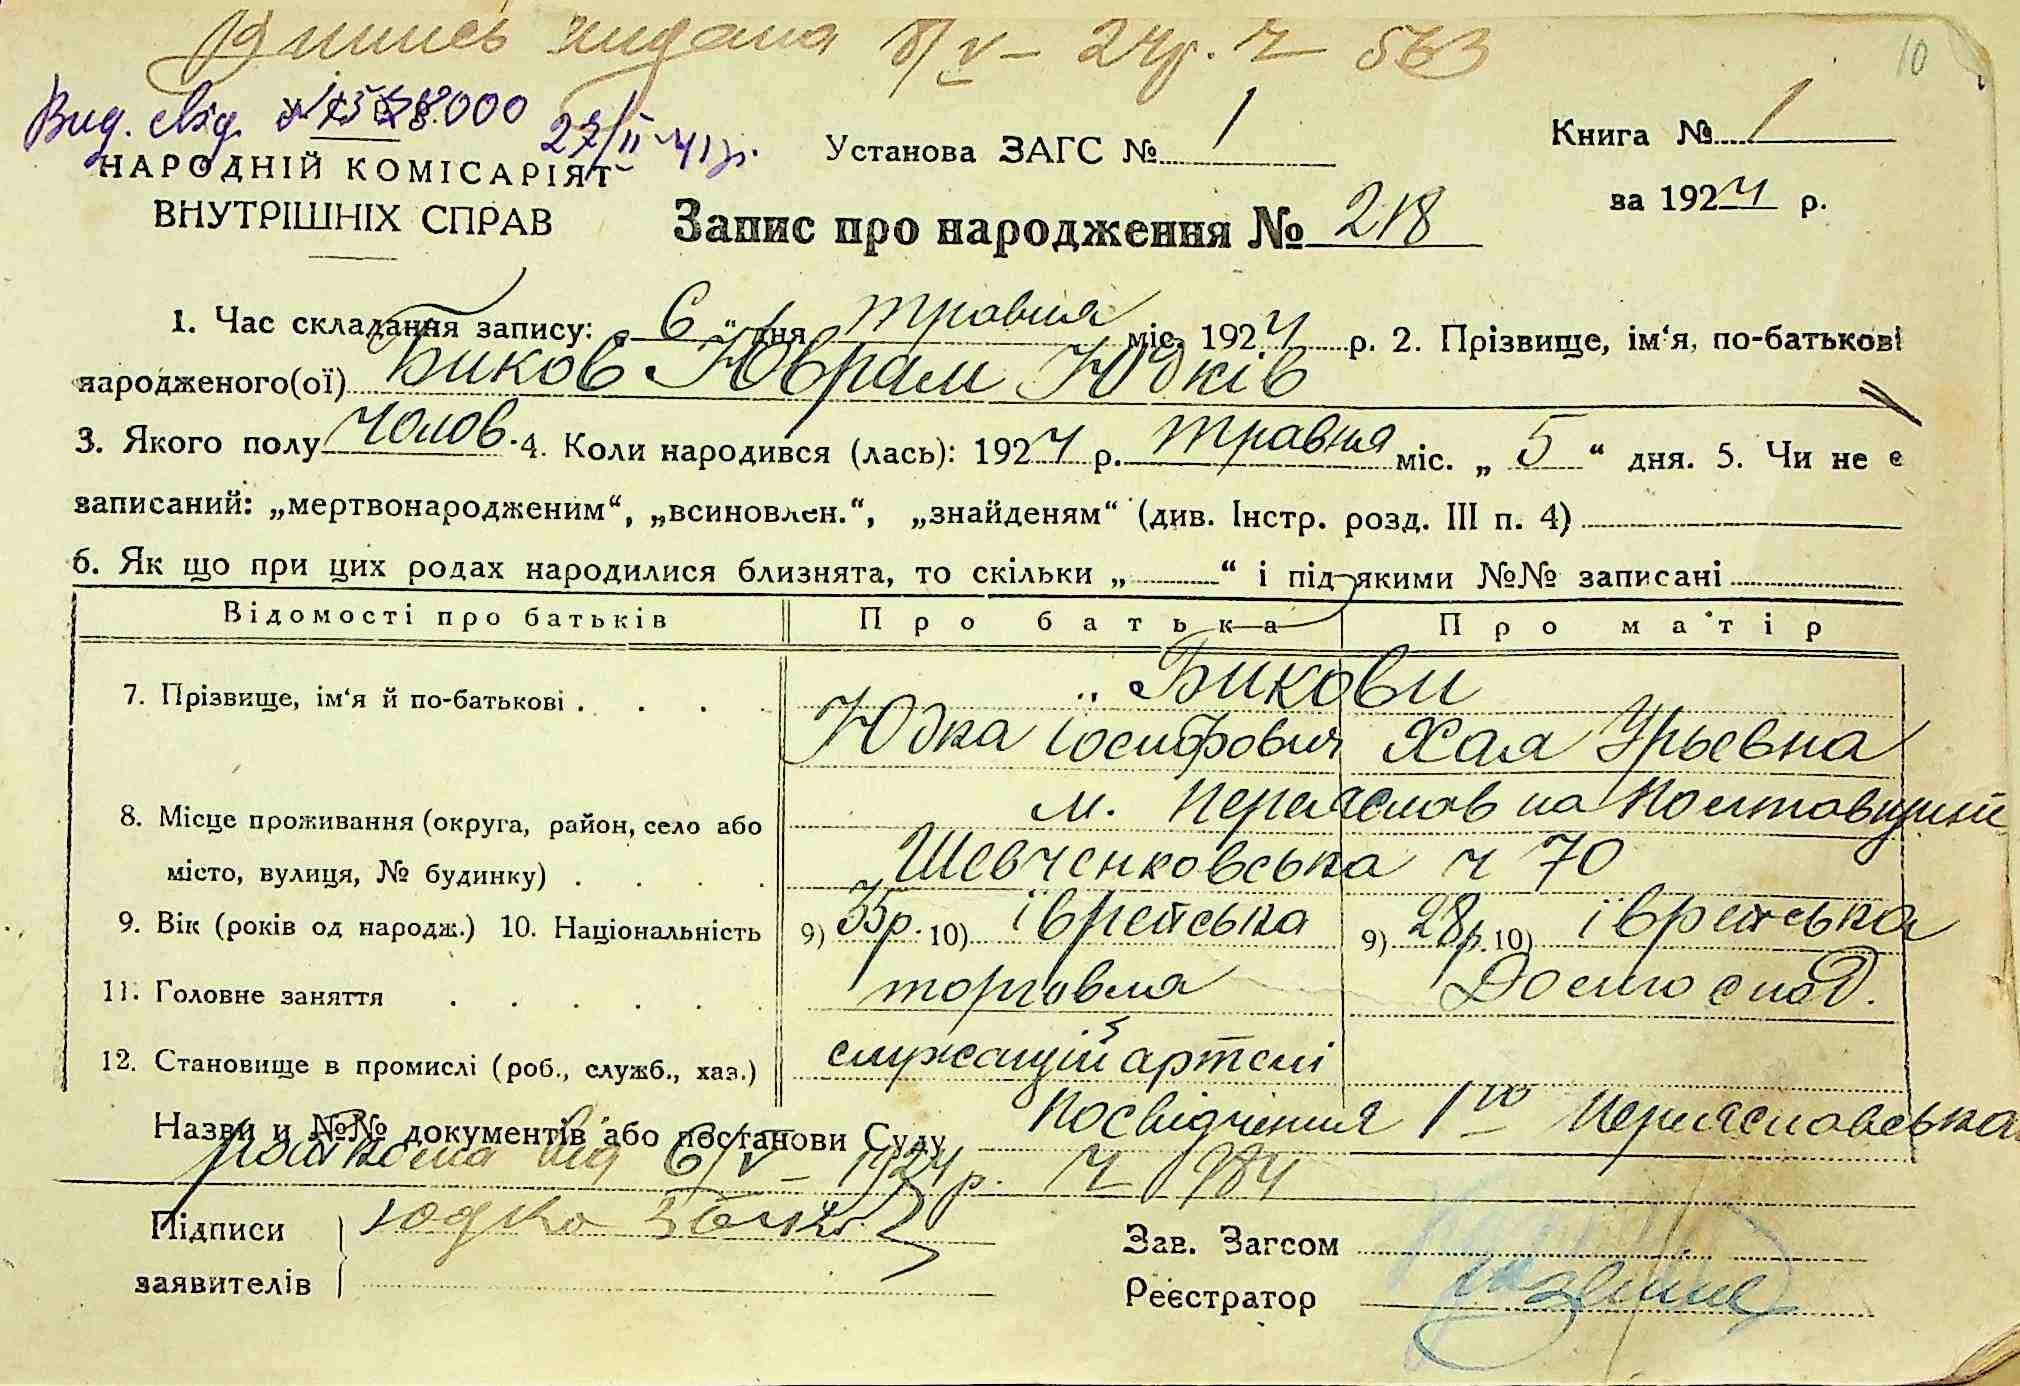 Випись видана 8/V – 24р. ч 563
10
Вид. свід. 27/II 41 р.
НАРОДНІЙ КОМІСАРІЯТ
ВНУТРІШНІХ СПРАВ
Установа ЗАГС № 1
Книга № 1
за 1924 р.
Запис про народження № 218
1. Час складання запису: „ 6 “ дня травня міс. 1924 р. 2. Прізвище, ім‘я, по-батькові
народженого(ої) Биков Юврам Юдків
3. Якого полу чолов. 4. Коли народився (лась): 1924 р. травня міс. „ 5 “ дня. 5. Чи не є
записаний: „мертвонародженим“, „всиновлен.“, „знайденям“ (див. Інстр. розд. III п. 4)
6. Як що при цих родах народилися близнята, то скільки „ “ і під якими №№ записані
Відомості про батьків Про батька Про матір
7. Прізвище, ім‘я й по-батькові . . . . Бикови
Юдка Іосифович Хая Урьевна
8. Місце проживання (округа, район, село або м. Переяслав на Полтавщині
місто, вулиця, № будинку) . . . . Шевченковська ч 70
9. Вік (років од народж.) 10. Національність 9) 35р. 10) івретська 9) 28р. 10) івретська
11. Головне заняття . . . . . торговля Домоспод.
12. Становище в промислі (роб., служб., хаз.) служащій артелі
Назви и №№ документів або постанови Суду Посвідчення 1го Переяславська
від 6/V – 1924 р. ч 184
Підписи Юдко
заявителів
Зав. Загсом
Реєстратор